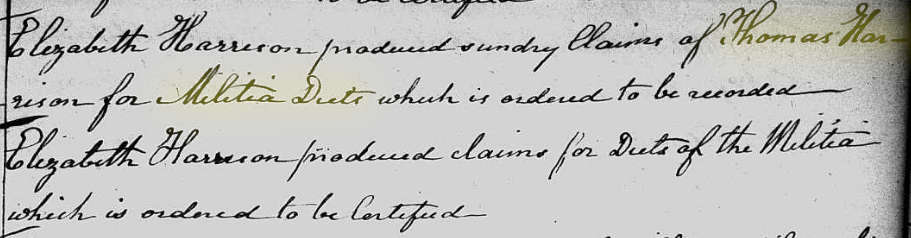 to be certified
Elizabeth Harrison produced sundry Claims of Thomas Har-
rison for Militia Diets which is ordered to be recorded
Elizabeth Harrison produced claims for Diets of the Militia
which is ordered to be Certified